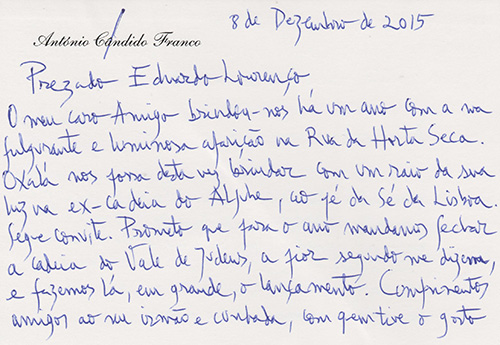 8 de Dezembro de 2015
António Cândido Franco
Prezado Eduardo Lourenço
O meu caro Amigo brindou-nos há um ano com a sua
fulgurante e luminosa aparição na Rua da Horta Seca.
Oxalá nos possa desta vez brindar com um raio da sua
luz na ex-cadeia do Aljube, ao pé da Sé de Lisboa.
Segue convite. Prometo que para o ano mandamos fechar
a cadeia do Vale de Judeus, a pior segundo me dizem,
e fazemos lá, em grande, o lançamento. Cumprimentos
amigos ao seu irmão e cunhada, com quem tive o gosto